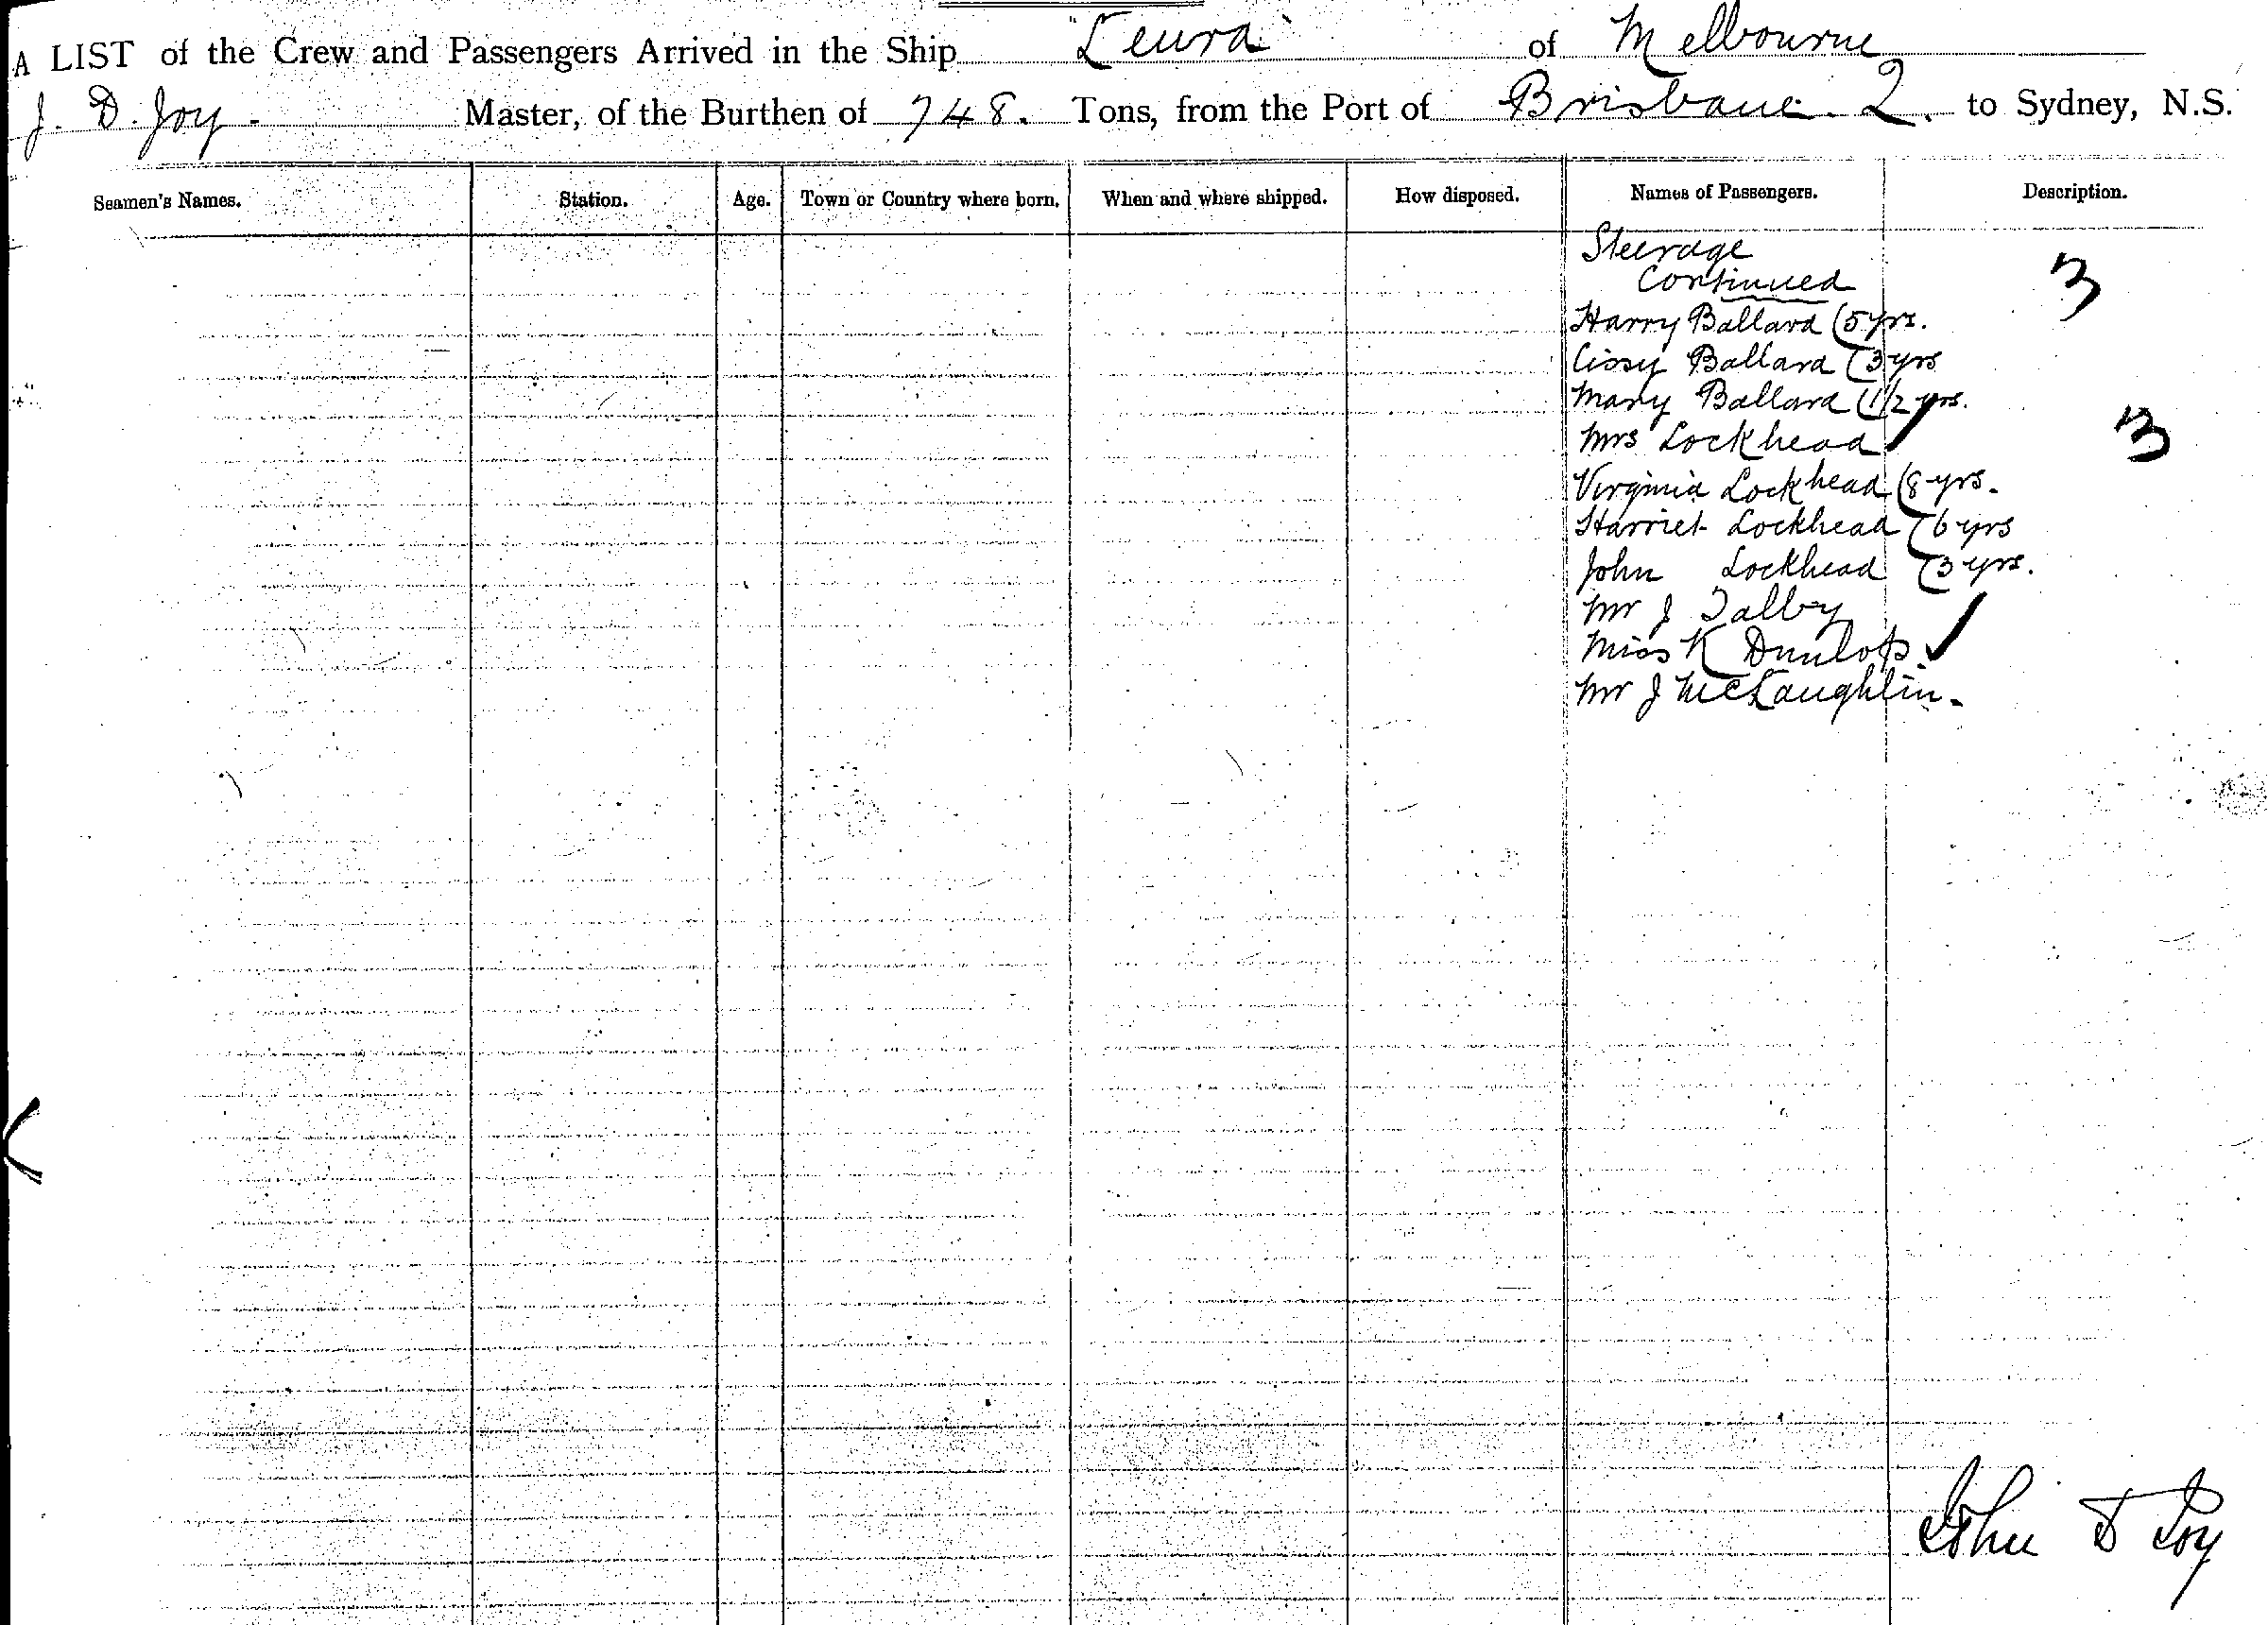 A LIST of the Crew and Passengers Arrived in the Ship "Leura" of Melbourne
J. D. Joy - Master, of the Burthen of 748. Tons, from the Port of Brisbane. Q. to Sydney, N.S.
Seamen's Names. Station. Age. Town or Country where born. When and where shipped. How disposed. Names of Passengers. Description.
Steerage
Continued
3
Harry Ballard (5 yrs.
Cissy Ballard (3 yrs
Mary Ballard (1 1/2 yrs.
Mrs Lockhead
3
Virginia Lockhead (8 yrs.
Harriet Lockhead (6 yrs
John Lockhead (3 yrs.
Mr J Talby
Miss K Dunlop.
Mr J McLaughlin.
John D Joy